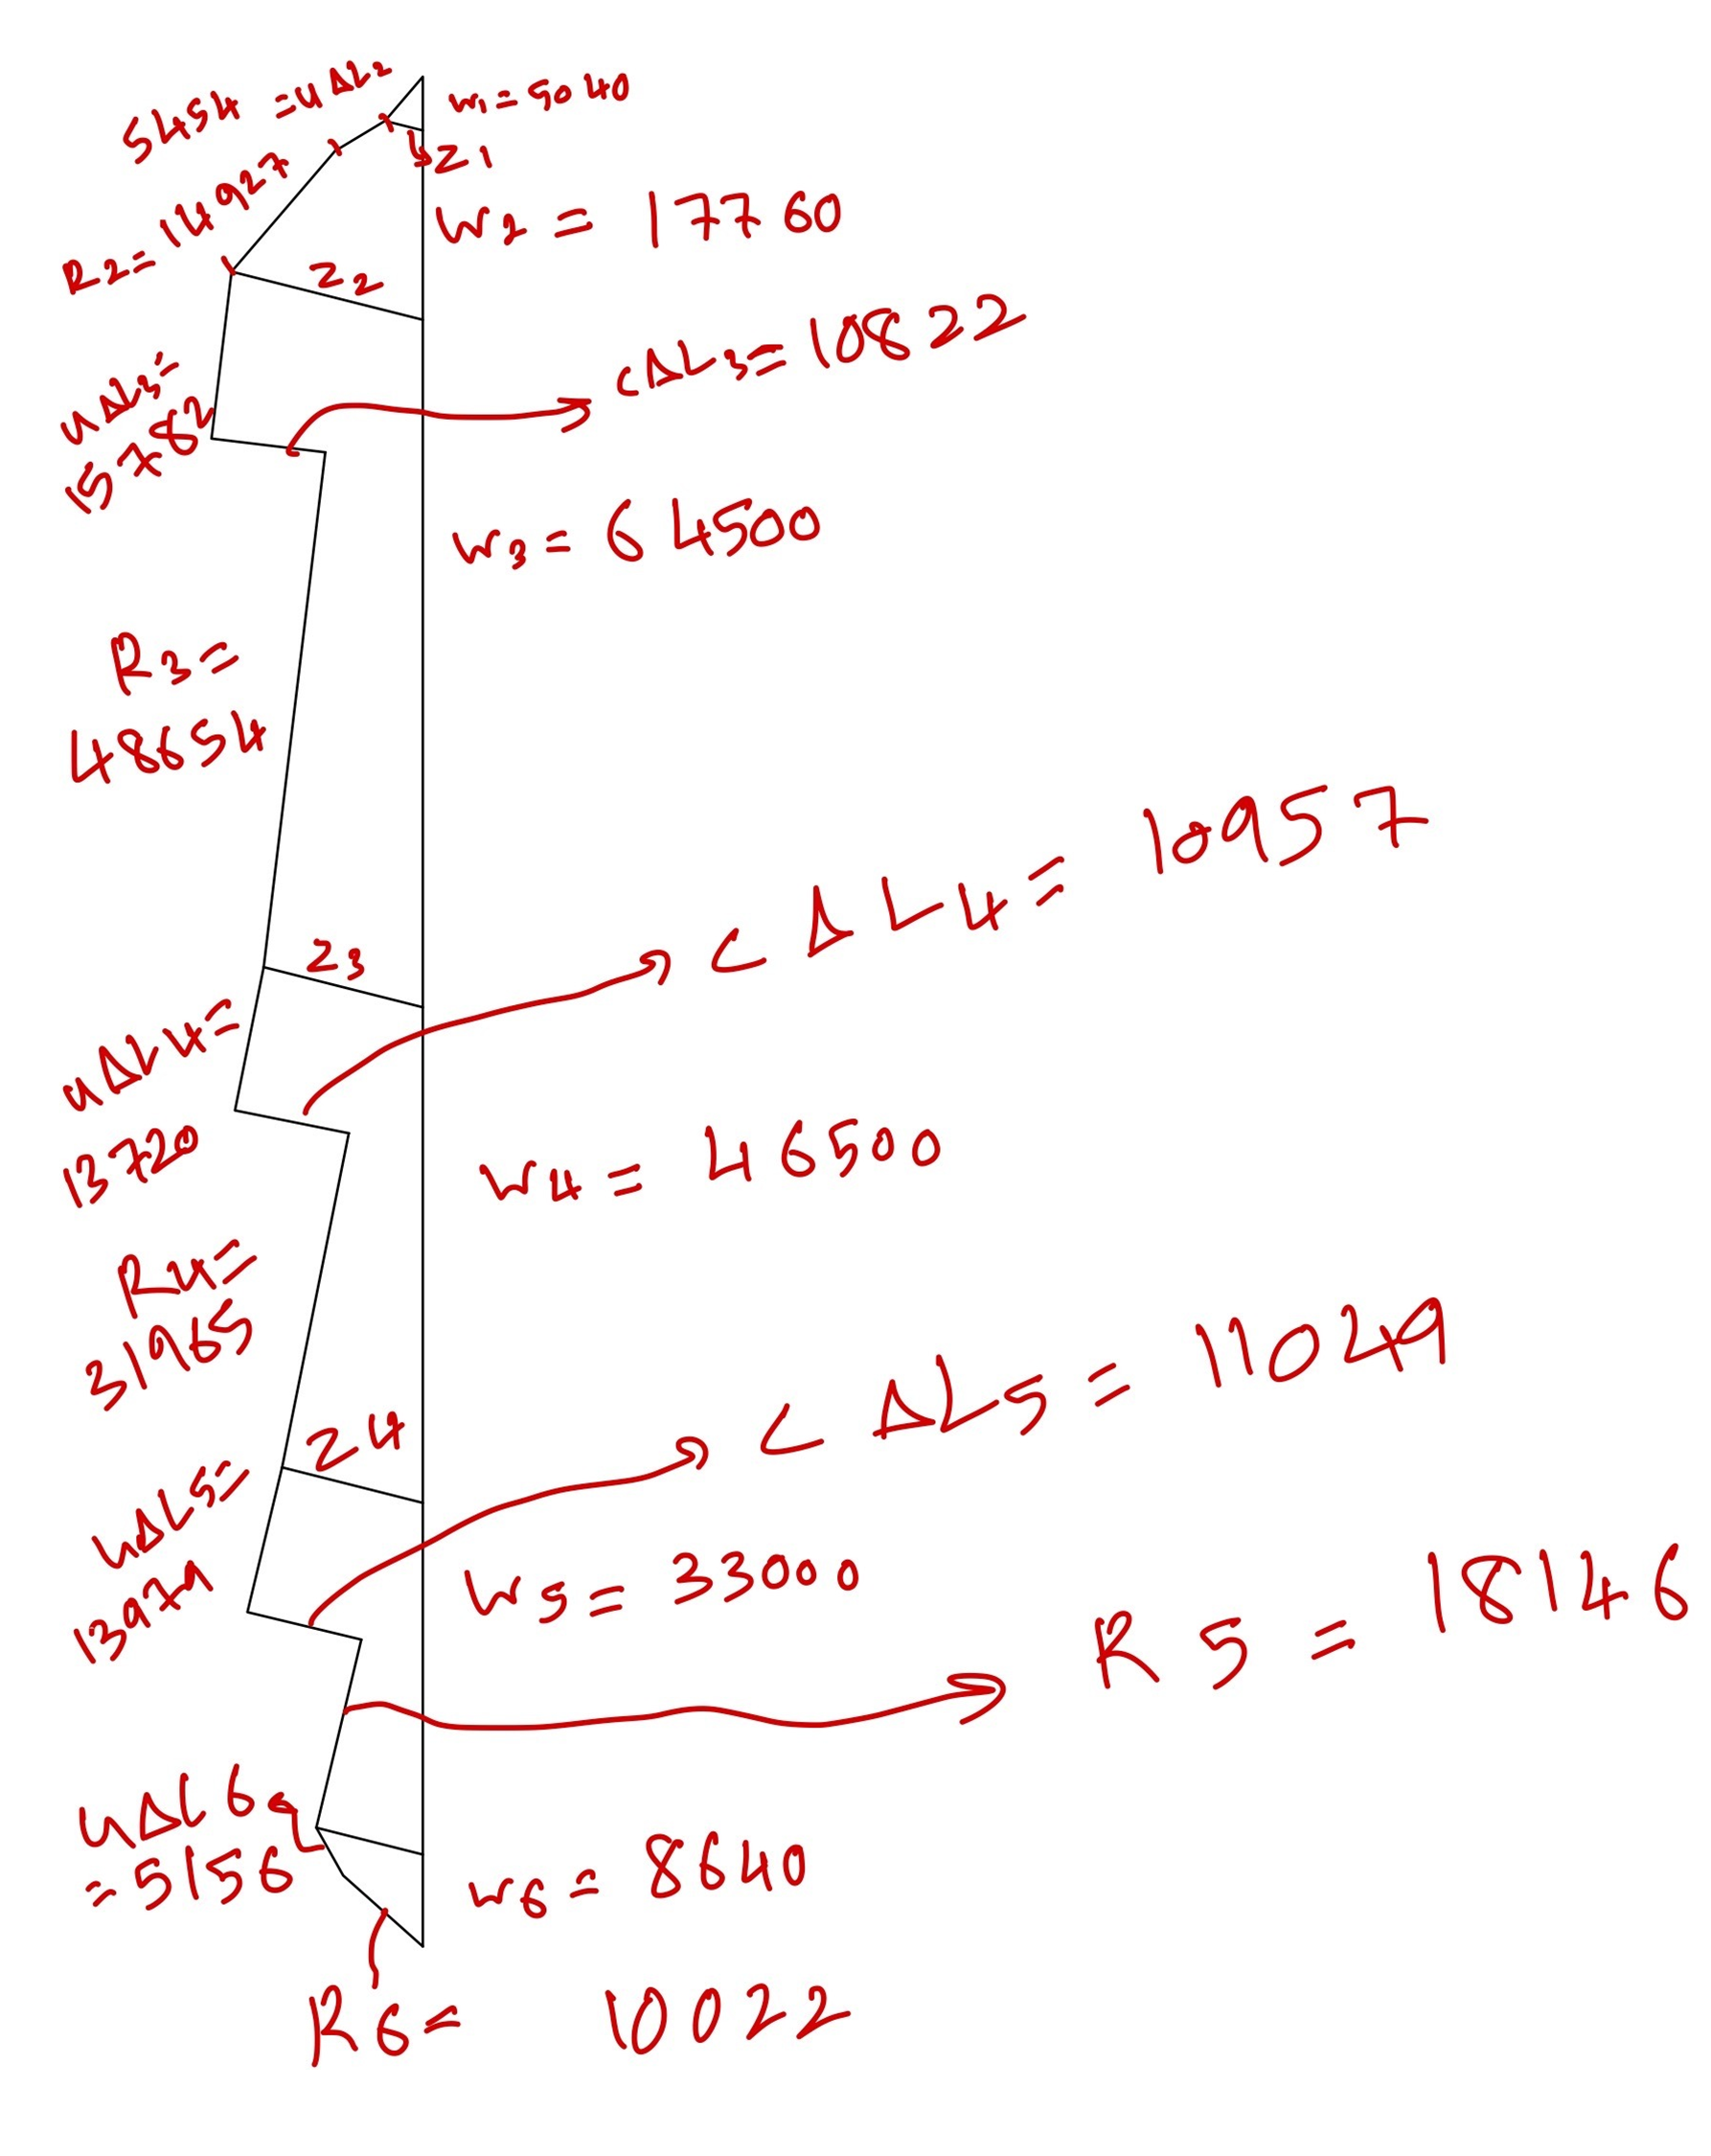 5454 = uΔL2
w1 = 5040
Z1
R2 = 14927
w2 = 17760
Z2
cΔL3 = 10822
uΔL3 =
15762
w3 = 64500
R3 =
48654
cΔL4 = 10957
Z3
uΔL4 =
13720
w4 = 46500
R4 =
31965
cΔL5 = 11029
Z4
uΔL5 =
w5 = 33000
R5 = 18146
uΔL6
= 5156
w6 = 8640
R6 = 10022